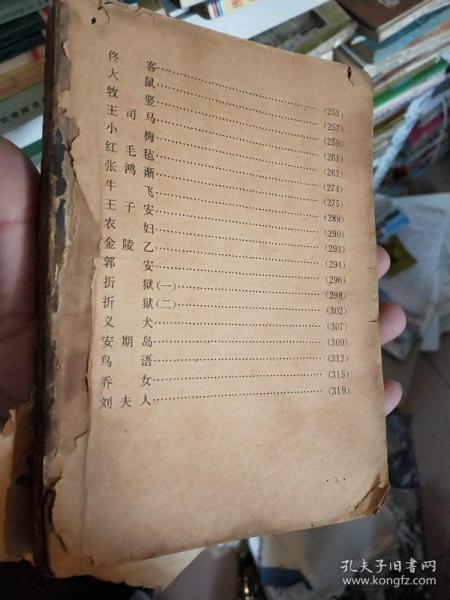 佟客……(253)
大鼠……(257)
牧竖……(259)
王司马……(261)
小梅……(263)
红毛毡……(274)
张鸿渐……(275)
牛飞……(289)
王子安……(290)
农妇……(293)
金陵乙……(294)
郭安……(296)
折狱(一)……(298)
折狱(二)……(302)
义犬……(307)
安期岛……(309)
鸟语……(313)
乔女……(315)
刘夫人……(319)
·3·
孔夫子旧书网
www.kongfz.com